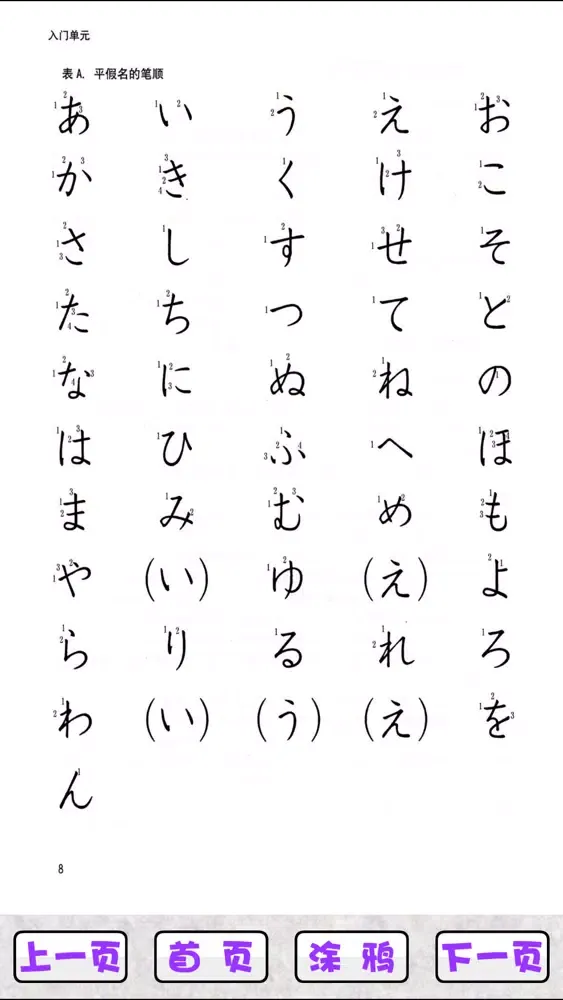 入门单元
表 A. 平假名的笔顺
あ い う え お
か き く け こ
さ し す せ そ
た ち つ て と
な に ぬ ね の
は ひ ふ へ ほ
ま み む め も
や (い) ゆ (え) よ
ら り る れ ろ
わ (い) (う) (え) を
ん
8
上一页 首页 涂鸦 下一页